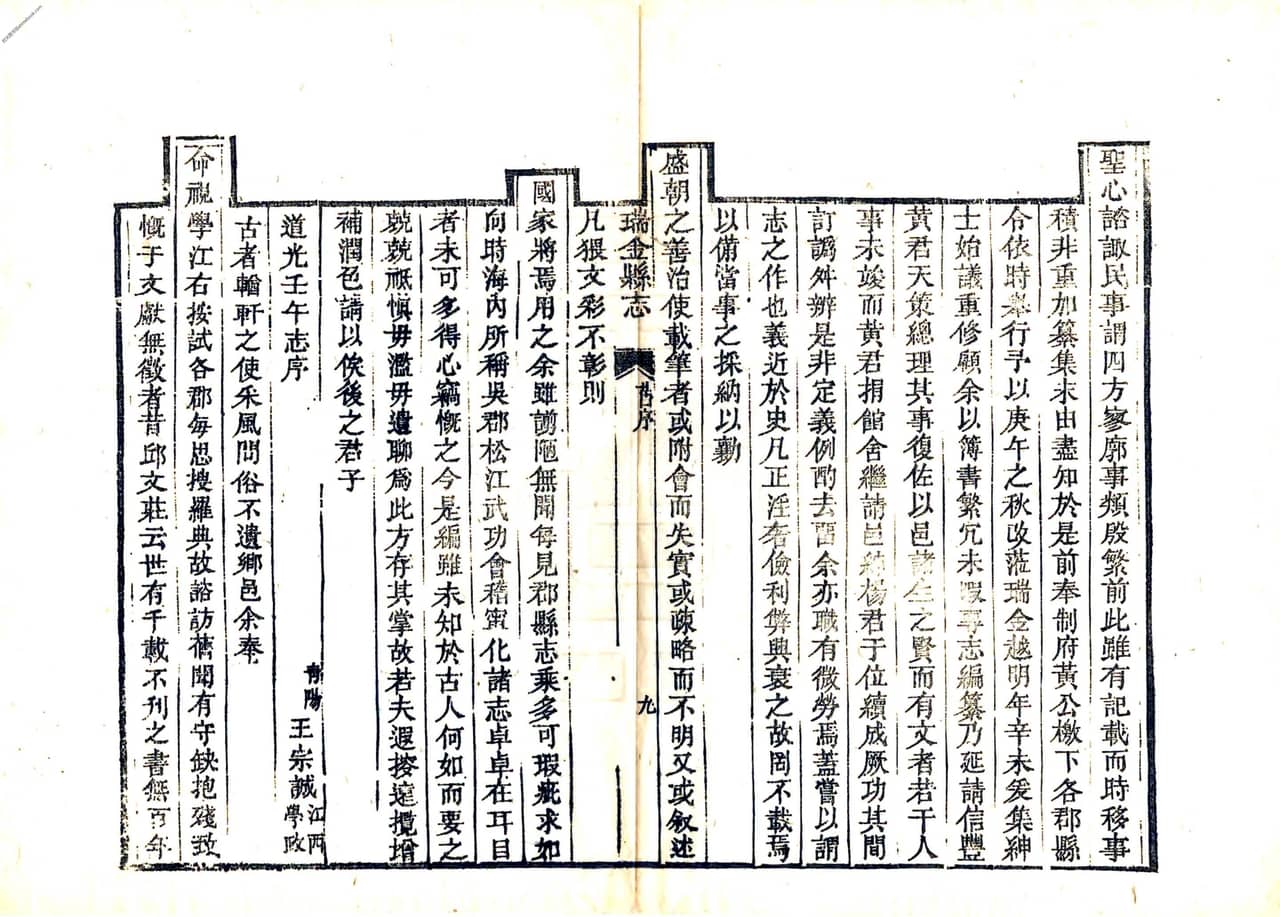 聖心諮諏民事謂四方寥廓事類殷繁前此雖有記載而時移事
積非重加纂集末由盡知於是前奉制府黃公檄下各郡縣
令依時舉行予以庚午之秋改蒞瑞金越明年辛未爰集紳
士始議重修顧余以簿書繁冗未暇尋志編纂乃延請信豐
黃君天策總理其事復佐以邑諸生之賢而有文者若干人
事未竣而黃君捐館舍繼請邑紳楊君于位續成厥功其間
訂譌舛辨是非定義例酌去畱余亦職有微勞焉蓋嘗以謂
志之作也義近於史凡正淫奢儉利弊興衰之故罔不載焉
以備當事之採納以勷
盛朝之善治使載筆者或附會而失實或疎略而不明又或敘述
瑞金縣志 舊序 九
凡猥文彩不彰則
國家將焉用之余雖謭陋無聞每見郡縣志乘多可瑕疵求如
向時海內所稱吳郡松江武功會稽甯化諸志卓卓在耳目
者未可多得心竊慨之今是編雖未知於古人何如而要之
兢兢祇慎毋濫毋遺聊爲此方存其掌故若夫遐搜遠攬增
補潤色請以俟後之君子
道光壬午志序
青陽 王宗誠 江西學政
古者輶軒之使采風問俗不遺鄉邑余奉
命視學江右按試各郡每思搜羅典故諮訪舊聞有守缺抱殘致
慨于文獻無徵者昔邱文莊云世有千載不刊之書無百年